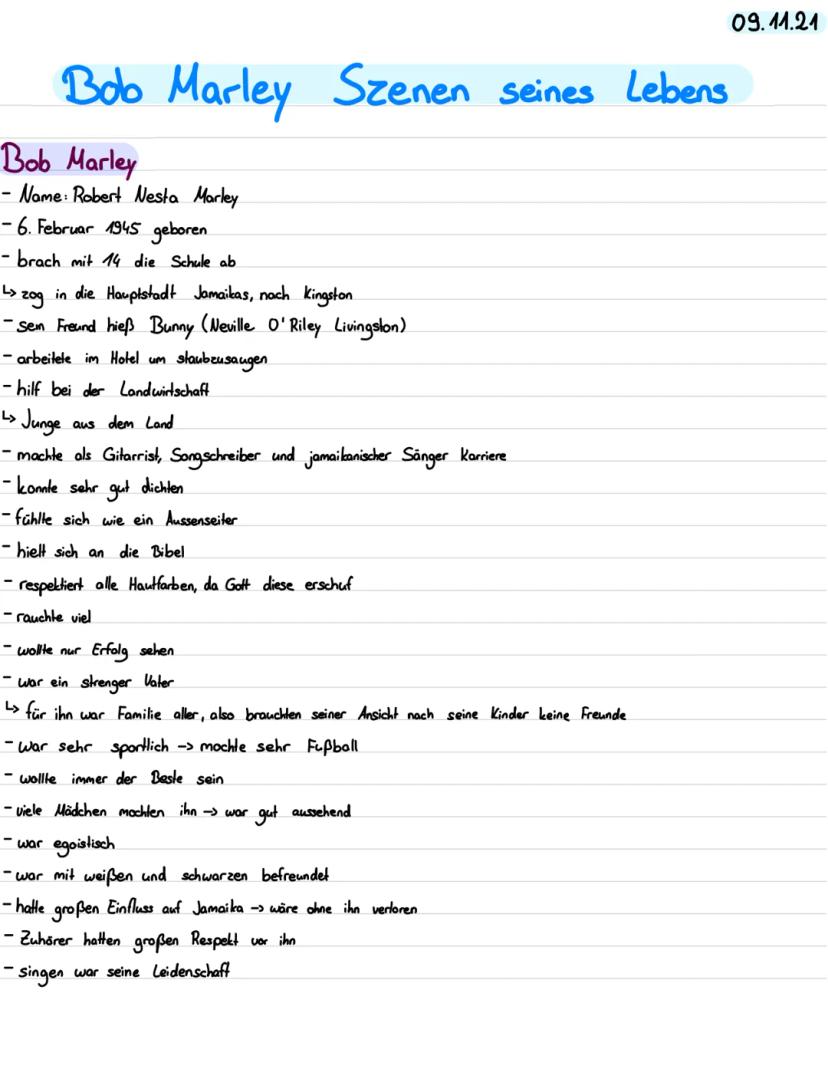 09.11.21
Bob Marley Szenen seines Lebens
Bob Marley
- Name: Robert Nesta Marley
- 6. Februar 1945 geboren
- brach mit 14 die Schule ab
↳ zog in die Hauptstadt Jamaikas, nach Kingston
- sein Freund hieß Bunny (Neville O'Riley Livingston)
- arbeitete im Hotel um staubzusaugen
- hilf bei der Landwirtschaft
↳ Junge aus dem Land
- machte als Gitarrist, Songschreiber und jamaikanischer Sänger Karriere
- konnte sehr gut dichten
- fühlte sich wie ein Aussenseiter
- hielt sich an die Bibel
- respektiert alle Hautfarben, da Gott diese erschuf
- rauchte viel
- wollte nur Erfolg sehen
- war ein strenger Vater
↳ für ihn war Familie aller, also brauchten seiner Ansicht nach seine Kinder keine Freunde
- war sehr sportlich -> mochte sehr Fußball
- wollte immer der Beste sein
- viele Mädchen mochten ihn -> war gut aussehend
- war egoistisch
- war mit weißen und schwarzen befreundet
- hatte großen Einfluss auf Jamaika -> wäre ohne ihn verloren
- Zuhörer hatten großen Respekt vor ihn
- singen war seine Leidenschaft